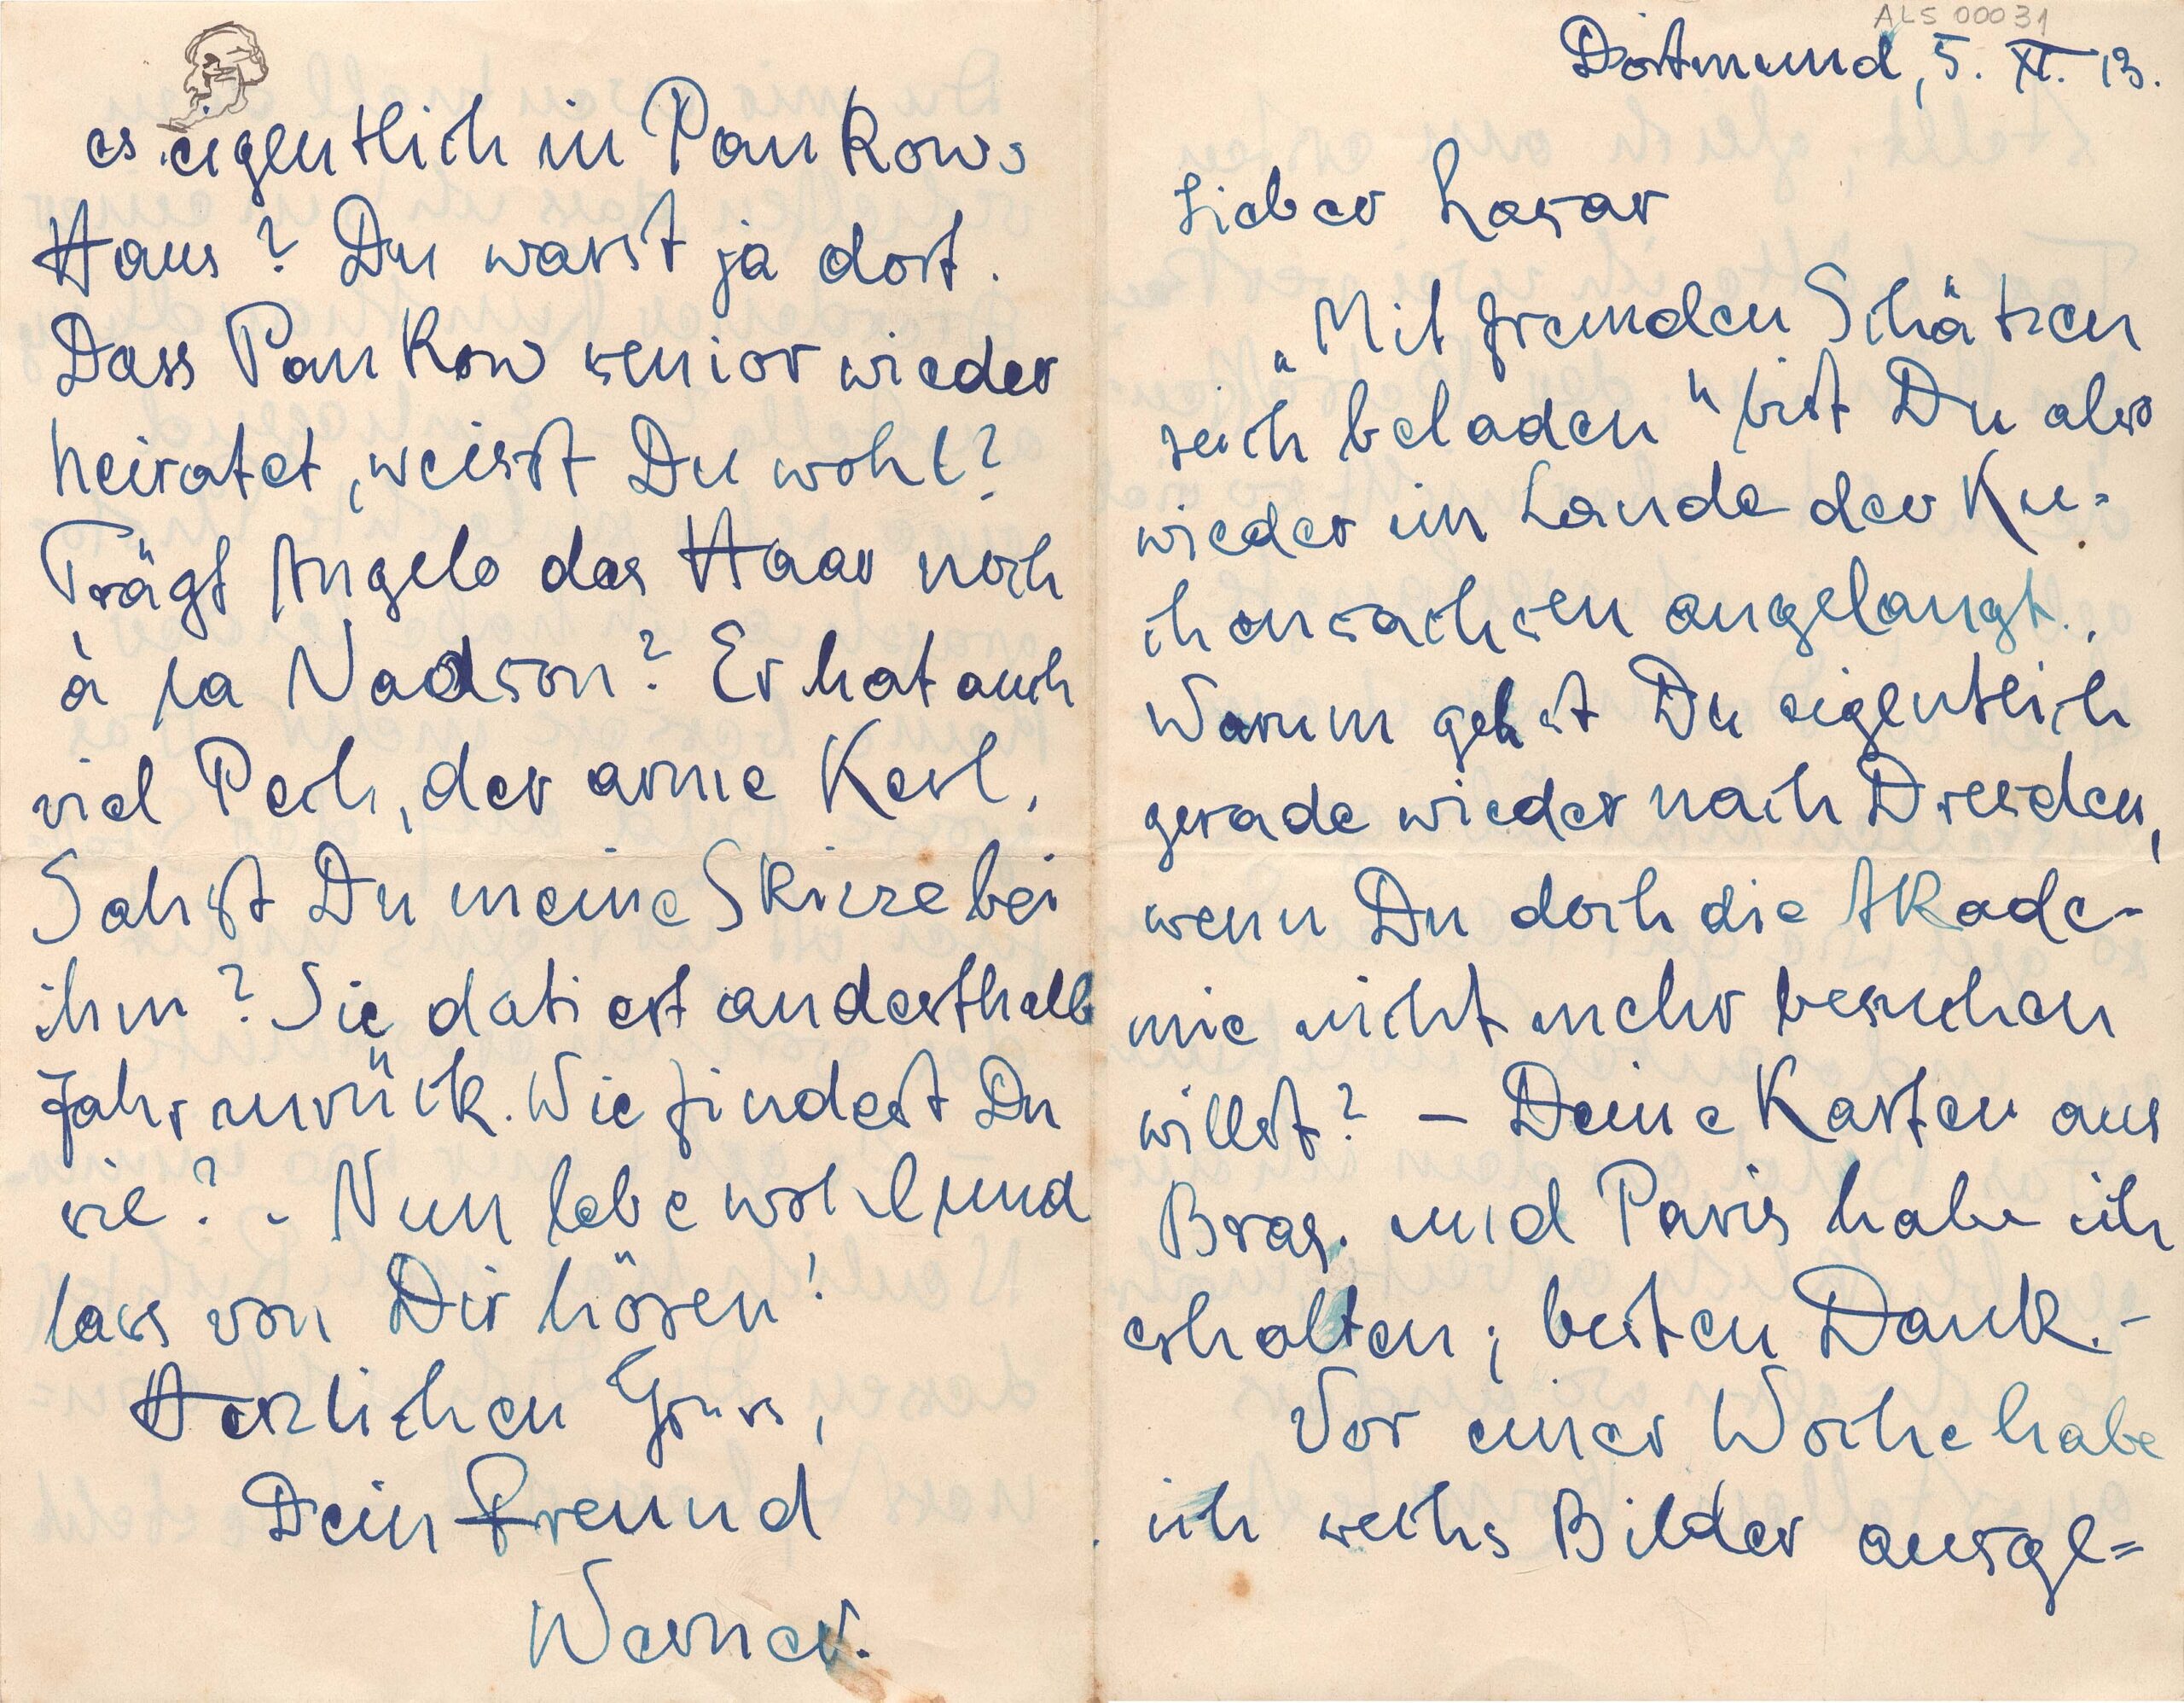 ALS 00031
Dortmund, 5. XI. 13.
Lieber Lasar
„Mit fremden Schätzen
reich beladen" bist Du also
wieder im Lande der Ku=
chensachsen angelangt.
Warum gehst Du eigentlich
gerade wieder nach Dresden,
wenn Du doch die Akade-
mie nicht mehr besuchen
willst? – Deine Karten aus
Bras. und Paris habe ich
erhalten; besten Dank. –
Vor einer Woche habe
ich sechs Bilder ausge=
es eigentlich in Pankows
Haus? Du warst ja dort.
Dass Pankow senior wieder
heiratet, weisst Du wohl?
Trägt Angelo das Haar noch
à la Nadson? Er hat auch
viel Pech, der arme Kerl.
Sahst Du meine Skizze bei
ihm? Sie datiert anderthalb
Jahr zurück. Wie findest Du
sie? - Nun lebe wohl und
lass von Dir hören!
Herzlichen Gruss,
Dein Freund
Werner.